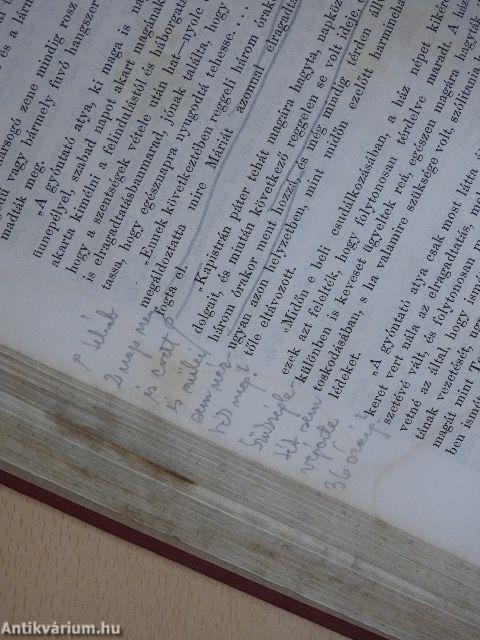 harsogó zene mindig rosz
vagy bármely fuvó hangszer
madták meg.
„A gyóntató atya, ki maga is
ünnepélyel, szabad napot akart magának
akarta kimélni a felindulástól és háborgat
hogy a szentségek vétele után hat—nyolc
is elragadtatásbanmarad, jónak találta, hogy
tassa, hogy egésznapra nyugodtá tehesse....
„Ennek következtében reggeli három órako
megáldoztatta mire Máriát azonnal elragadta
fogta el.
„Kapistrán páter tehát magára hagyta, napköz
dolgát, és miután következő reggelen se volt ideje,
három órakor ment hozzá, és még mindig térden ált
ugyan azon helyzetben, mint midőn ezelőtt harminchat
tőle eltávozott.
„Midőn e beli csudálkozásában, a ház népet kikér
ezek azt felelték, hogy folytonosan térdelve maradt. A ház
különben is keveset ügyeltek reá, egészen magára hagyták
toskodásában, s ha valamire szüksége volt, szólitonia
lédeket.
„A gyóntató atya csak most látta
keret vert nála az elragadtatás,
szetévé vált, és folytonosan
vetné az által, hogy ism
tának vezetését,
magát mint T
ben ismé
tehát
2 nap
is evett
is mély
sem
tés nap?
Szükségle-
tét sem
végezte
36 óráig?
Antikvárium.hu